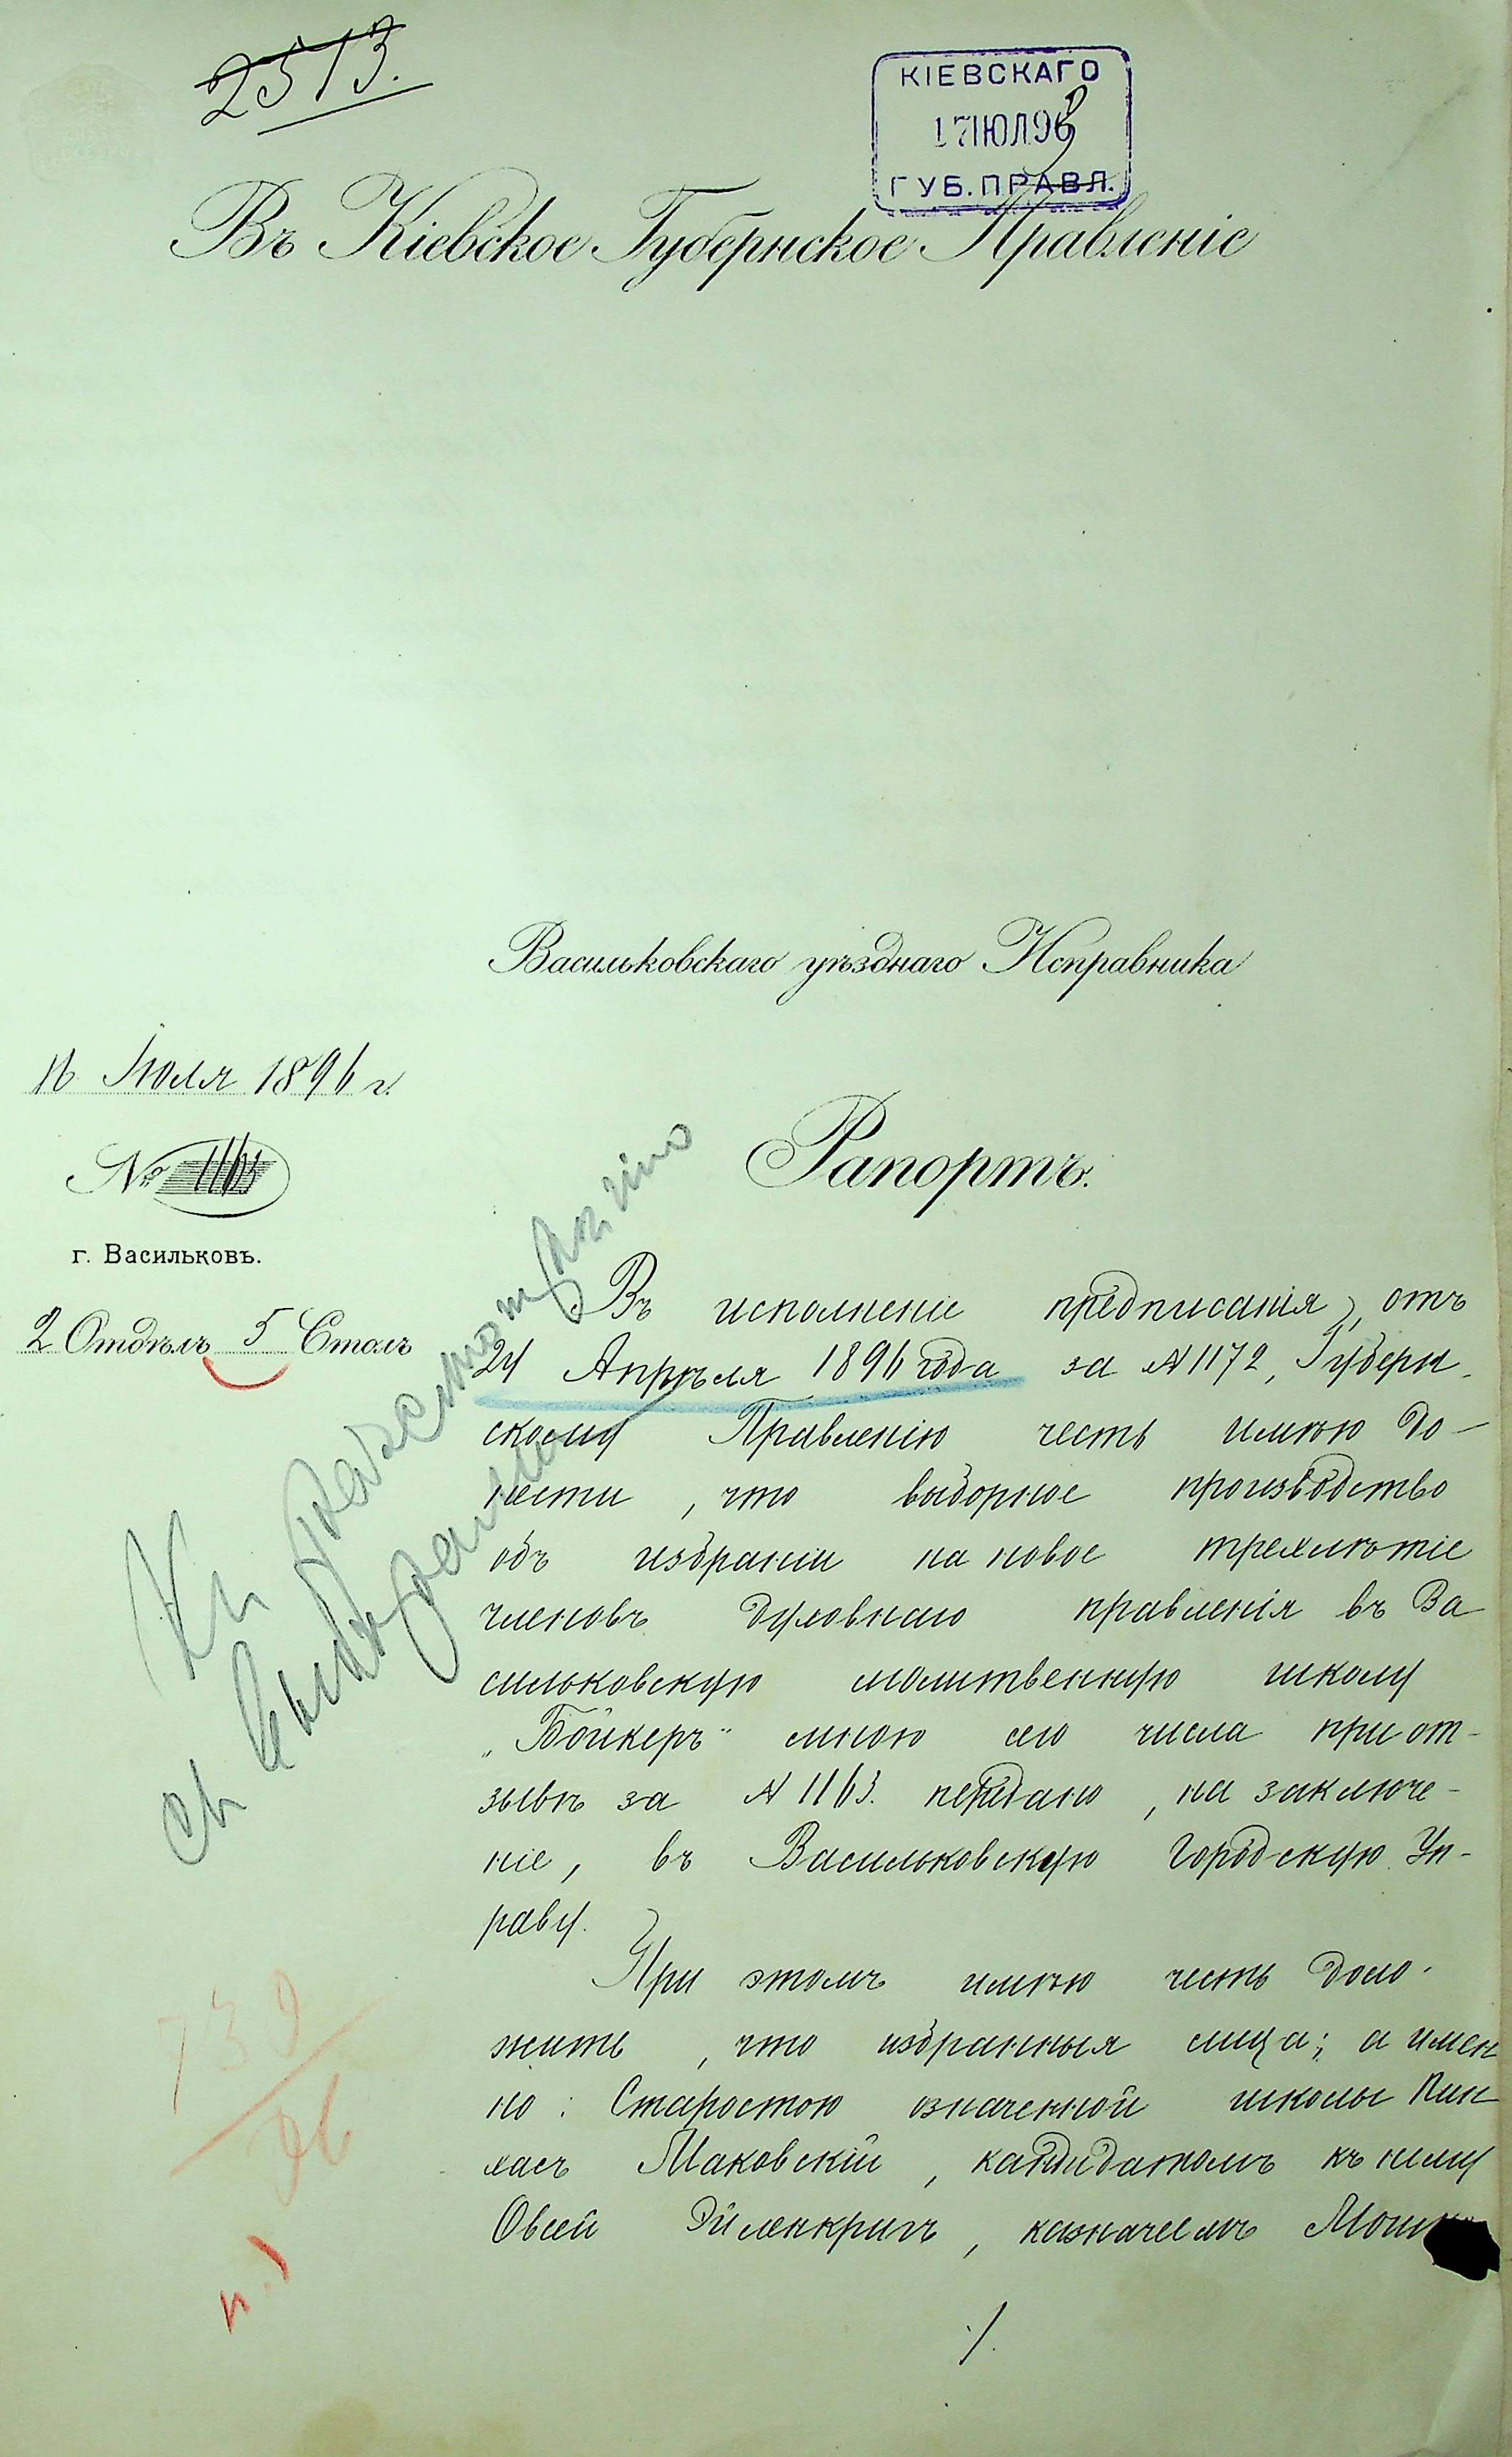 2513.
КІЕВСКАГО
17 ІЮЛ 96
ГУБ. ПРАВЛ.
Въ Кіевское Губернское Правленіе
Васильковскаго уѣзднаго Исправника
16 Іюля 1896 г.
№ 1163
г. Васильковъ.
2 Отдѣлъ 5 Столъ
Рапортъ.
Въ исполненіе предписанія, отъ
24 Апрѣля 1896 года за № 1172, Губерн
скому Правленію честь имѣю до-
нести, что выборное производство
объ избраніи на новое трехлѣтіе
членовъ духовнаго правленія въ Ва
сильковскую молитвенную школу
„Бойкеръ" мною сего числа при от-
зывѣ за № 1163. передано, на заключе-
ніе, въ Васильковскую Городскую Уп-
раву.
При этомъ имѣю честь доло-
жить, что избранныя лица; а имен
но: Старостою означенной школы Пин
хасъ Маковскій, кандидатомъ къ нему
Овсей Эйленкригъ, казначеемъ
./.
Къ
съ
732
96